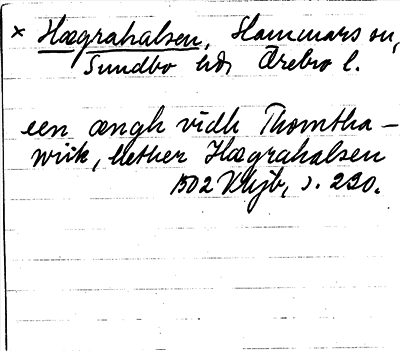 × Hægrahalsen, Hammars sn,
Sundbo hd, Örebro l.
een ængh vidh Thomtha-
wiik, hether Hægrahalsen
1502 Vhjb, s. 230.